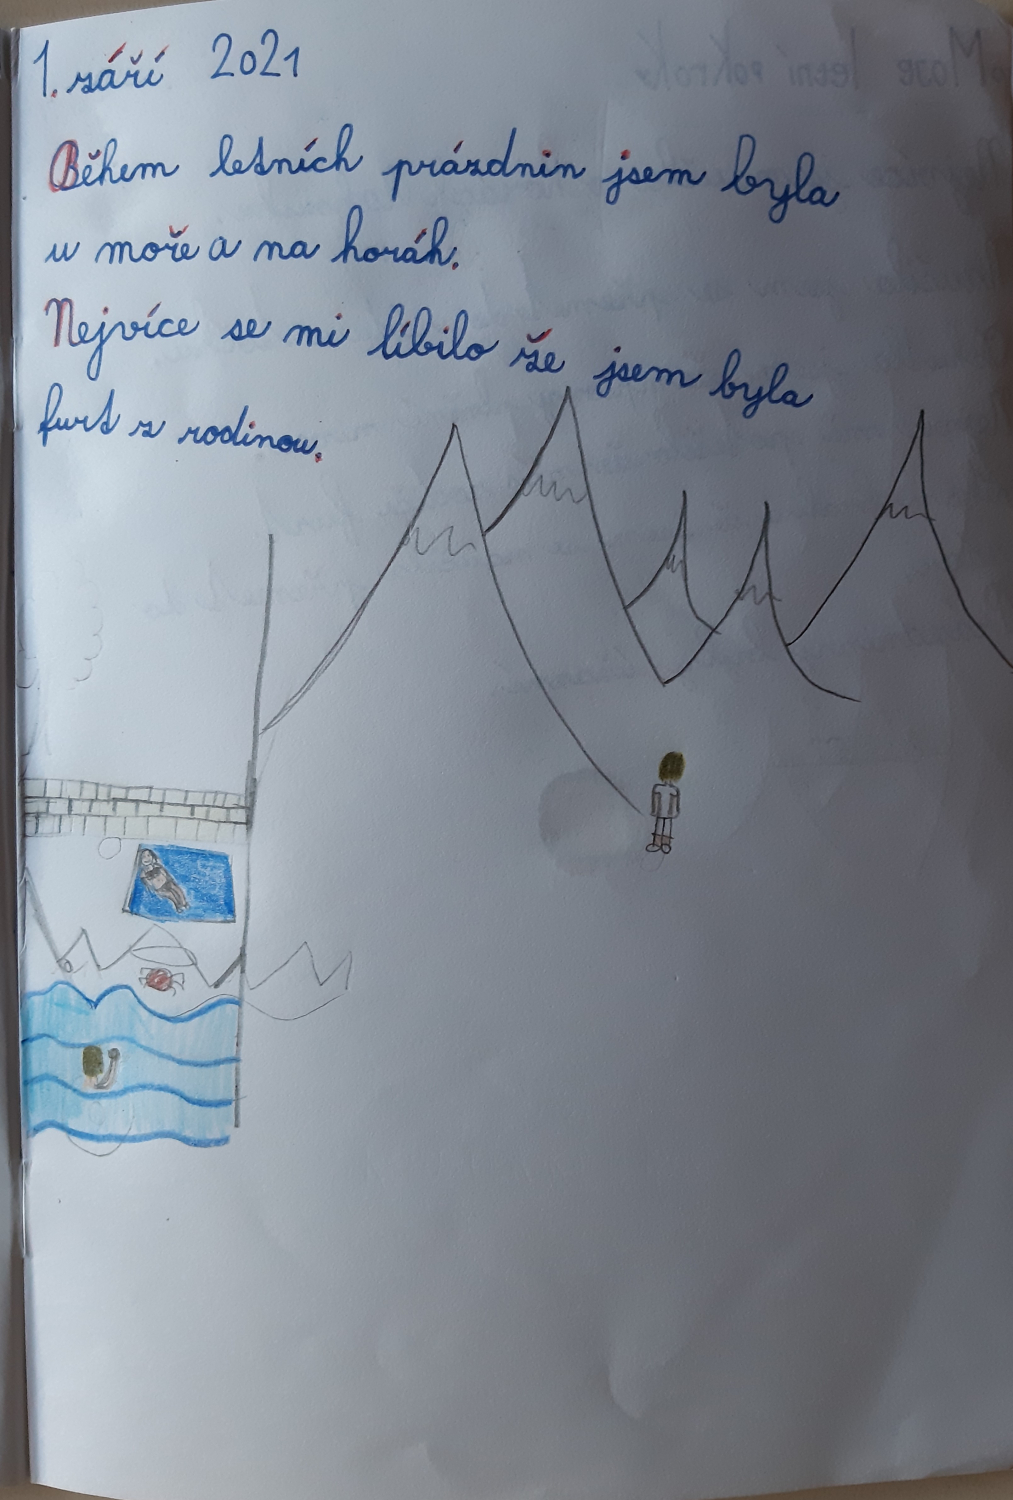 1. září 2021
Během letních prázdnin jsem byla
u moře a na horáh.
Nejvíce se mi líbilo že jsem byla
furt s rodinou.